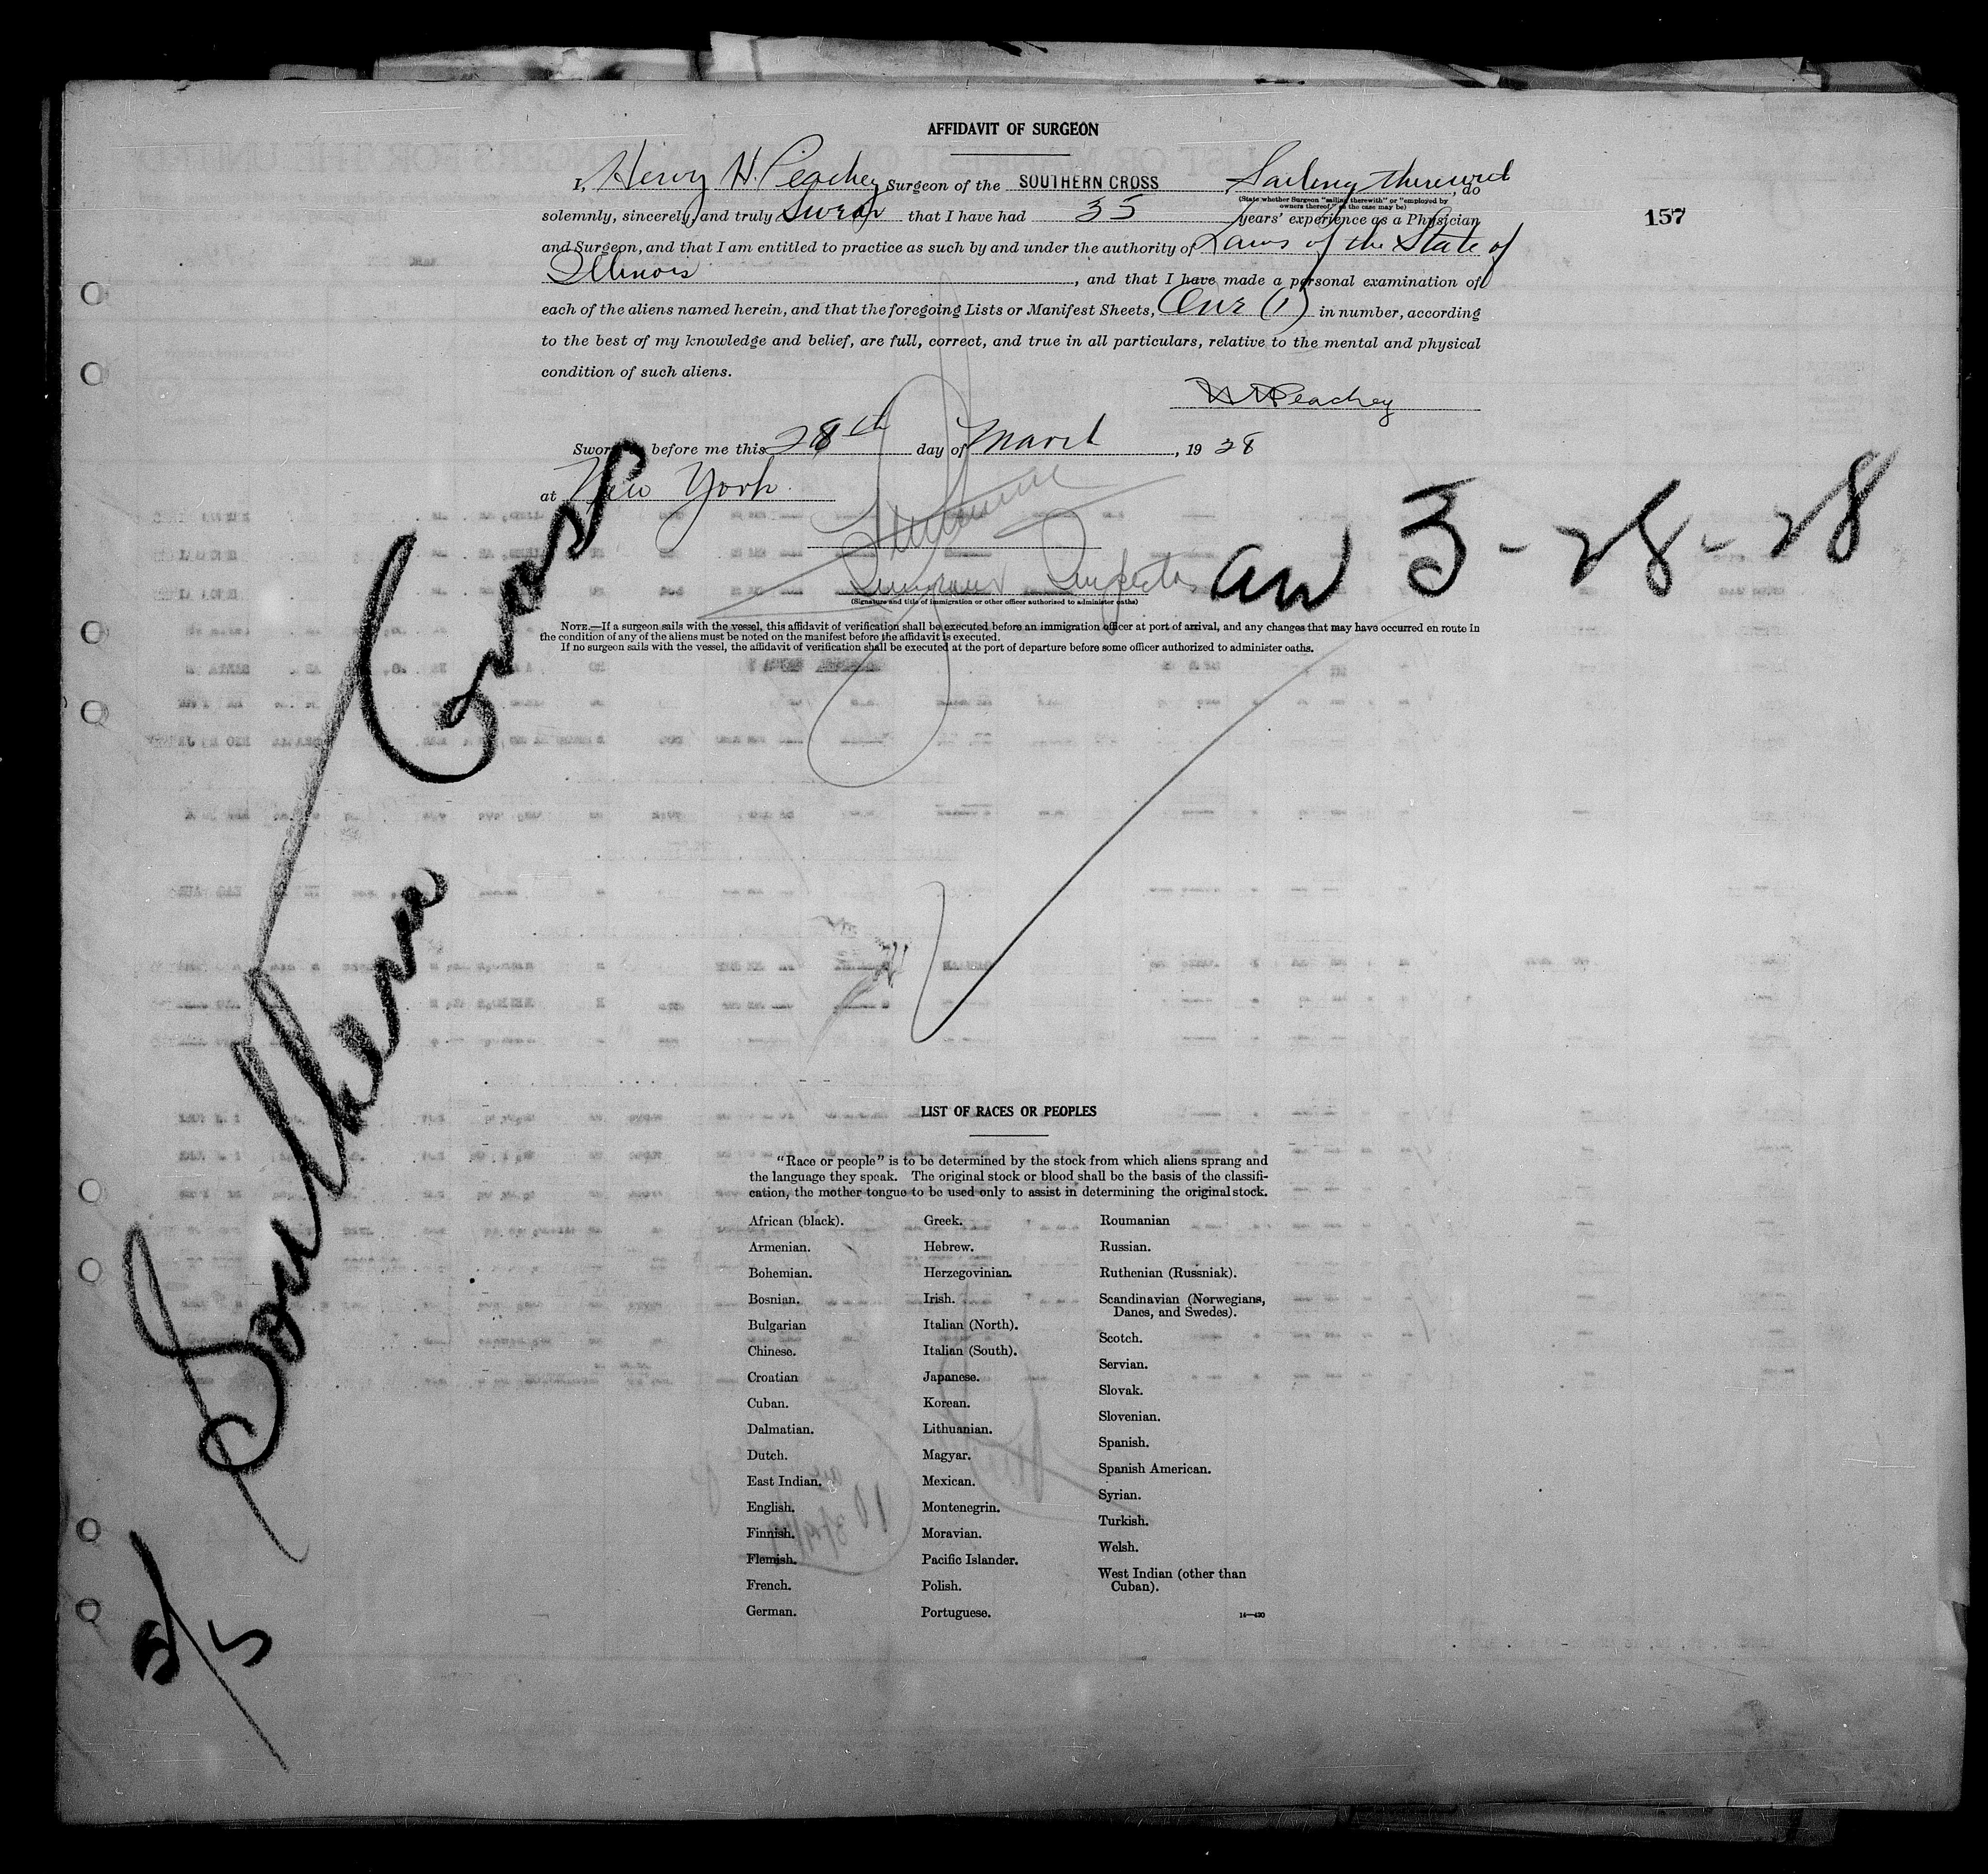 AFFIDAVIT OF SURGEON
I, Henry H. Peachey Surgeon of the SOUTHERN CROSS Sailing therewith, do
(State whether Surgeon "sailing therewith" or "employed by
owners thereof," as the case may be)
solemnly, sincerely, and truly Swear that I have had 35 years' experience as a Physician
157
and Surgeon, and that I am entitled to practice as such by and under the authority of Laws of the State of
Illinois, and that I have made a personal examination of
each of the aliens named herein, and that the foregoing Lists or Manifest Sheets, One (1) in number, according
to the best of my knowledge and belief, are full, correct, and true in all particulars, relative to the mental and physical
condition of such aliens.
HHPeachey
Sworn before me this 28th day of March, 1928
at New York.
Immigrant Inspector
arr 3-28-28
(Signature and title of immigration or other officer authorized to administer oaths)
NOTE.—If a surgeon sails with the vessel, this affidavit of verification shall be executed before an immigration officer at port of arrival, and any changes that may have occurred en route in
the condition of any of the aliens must be noted on the manifest before the affidavit is executed.
If no surgeon sails with the vessel, the affidavit of verification shall be executed at the port of departure before some officer authorized to administer oaths.
Southern Cross
S/S
LIST OF RACES OR PEOPLES
"Race or people" is to be determined by the stock from which aliens sprang and
the language they speak. The original stock or blood shall be the basis of the classifi-
cation, the mother tongue to be used only to assist in determining the original stock.
African (black).
Armenian.
Bohemian.
Bosnian.
Bulgarian
Chinese.
Croatian
Cuban.
Dalmatian.
Dutch.
East Indian.
English.
Finnish.
Flemish.
French.
German.
Greek.
Hebrew.
Herzegovinian.
Irish.
Italian (North).
Italian (South).
Japanese.
Korean.
Lithuanian.
Magyar.
Mexican.
Montenegrin.
Moravian.
Pacific Islander.
Polish.
Portuguese.
Roumanian
Russian.
Ruthenian (Russniak).
Scandinavian (Norwegians,
Danes, and Swedes).
Scotch.
Servian.
Slovak.
Slovenian.
Spanish.
Spanish American.
Syrian.
Turkish.
Welsh.
West Indian (other than
Cuban).
14—420